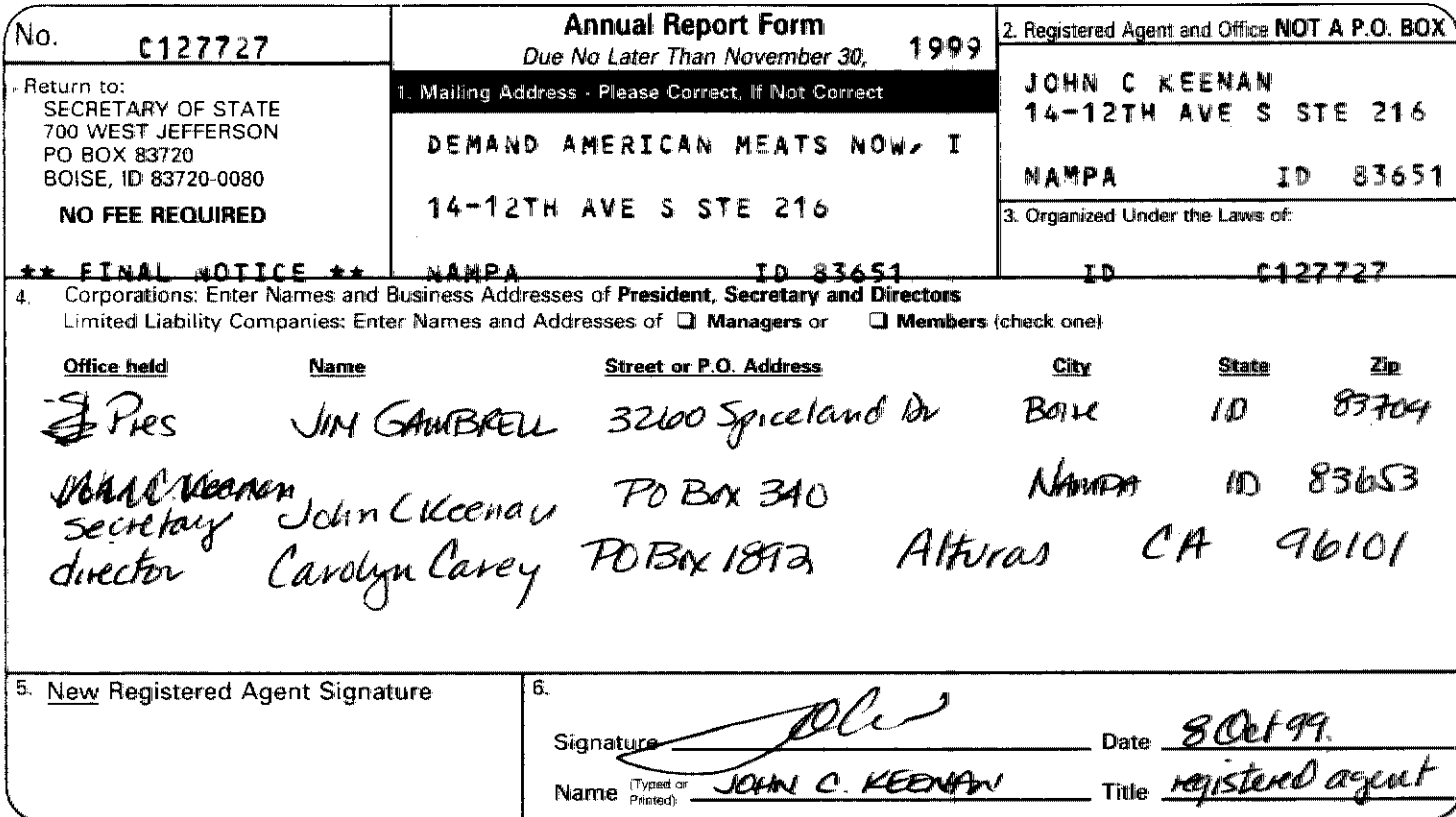 No. C127727
Return to:
SECRETARY OF STATE
700 WEST JEFFERSON
PO BOX 83720
BOISE, ID 83720-0080
NO FEE REQUIRED
** FINAL NOTICE **
Annual Report Form
Due No Later Than November 30, 1999
1. Mailing Address - Please Correct, If Not Correct
DEMAND AMERICAN MEATS NOW, I
14-12TH AVE S STE 216
NAMPA ID 83651
2. Registered Agent and Office NOT A P.O. BOX
JOHN C KEENAN
14-12TH AVE S STE 216
NAMPA ID 83651
3. Organized Under the Laws of:
ID C127727
4. Corporations: Enter Names and Business Addresses of President, Secretary and Directors
Limited Liability Companies: Enter Names and Addresses of ☐ Managers or ☐ Members (check one)
Office held Name Street or P.O. Address City State Zip
Pres JIM GAMBRELL Spiceland Dr Boise ID 83704
John C. Keenan
secretary John C Keenan PO Box 340 NAMPA ID 83653
director Carolyn Carey PO Box 1892 Alturas CA 96101
5. New Registered Agent Signature
6.
Signature
Date 8 Oct 99.
Name (Typed or Printed) JOHN C. KEENAN
Title registered agent